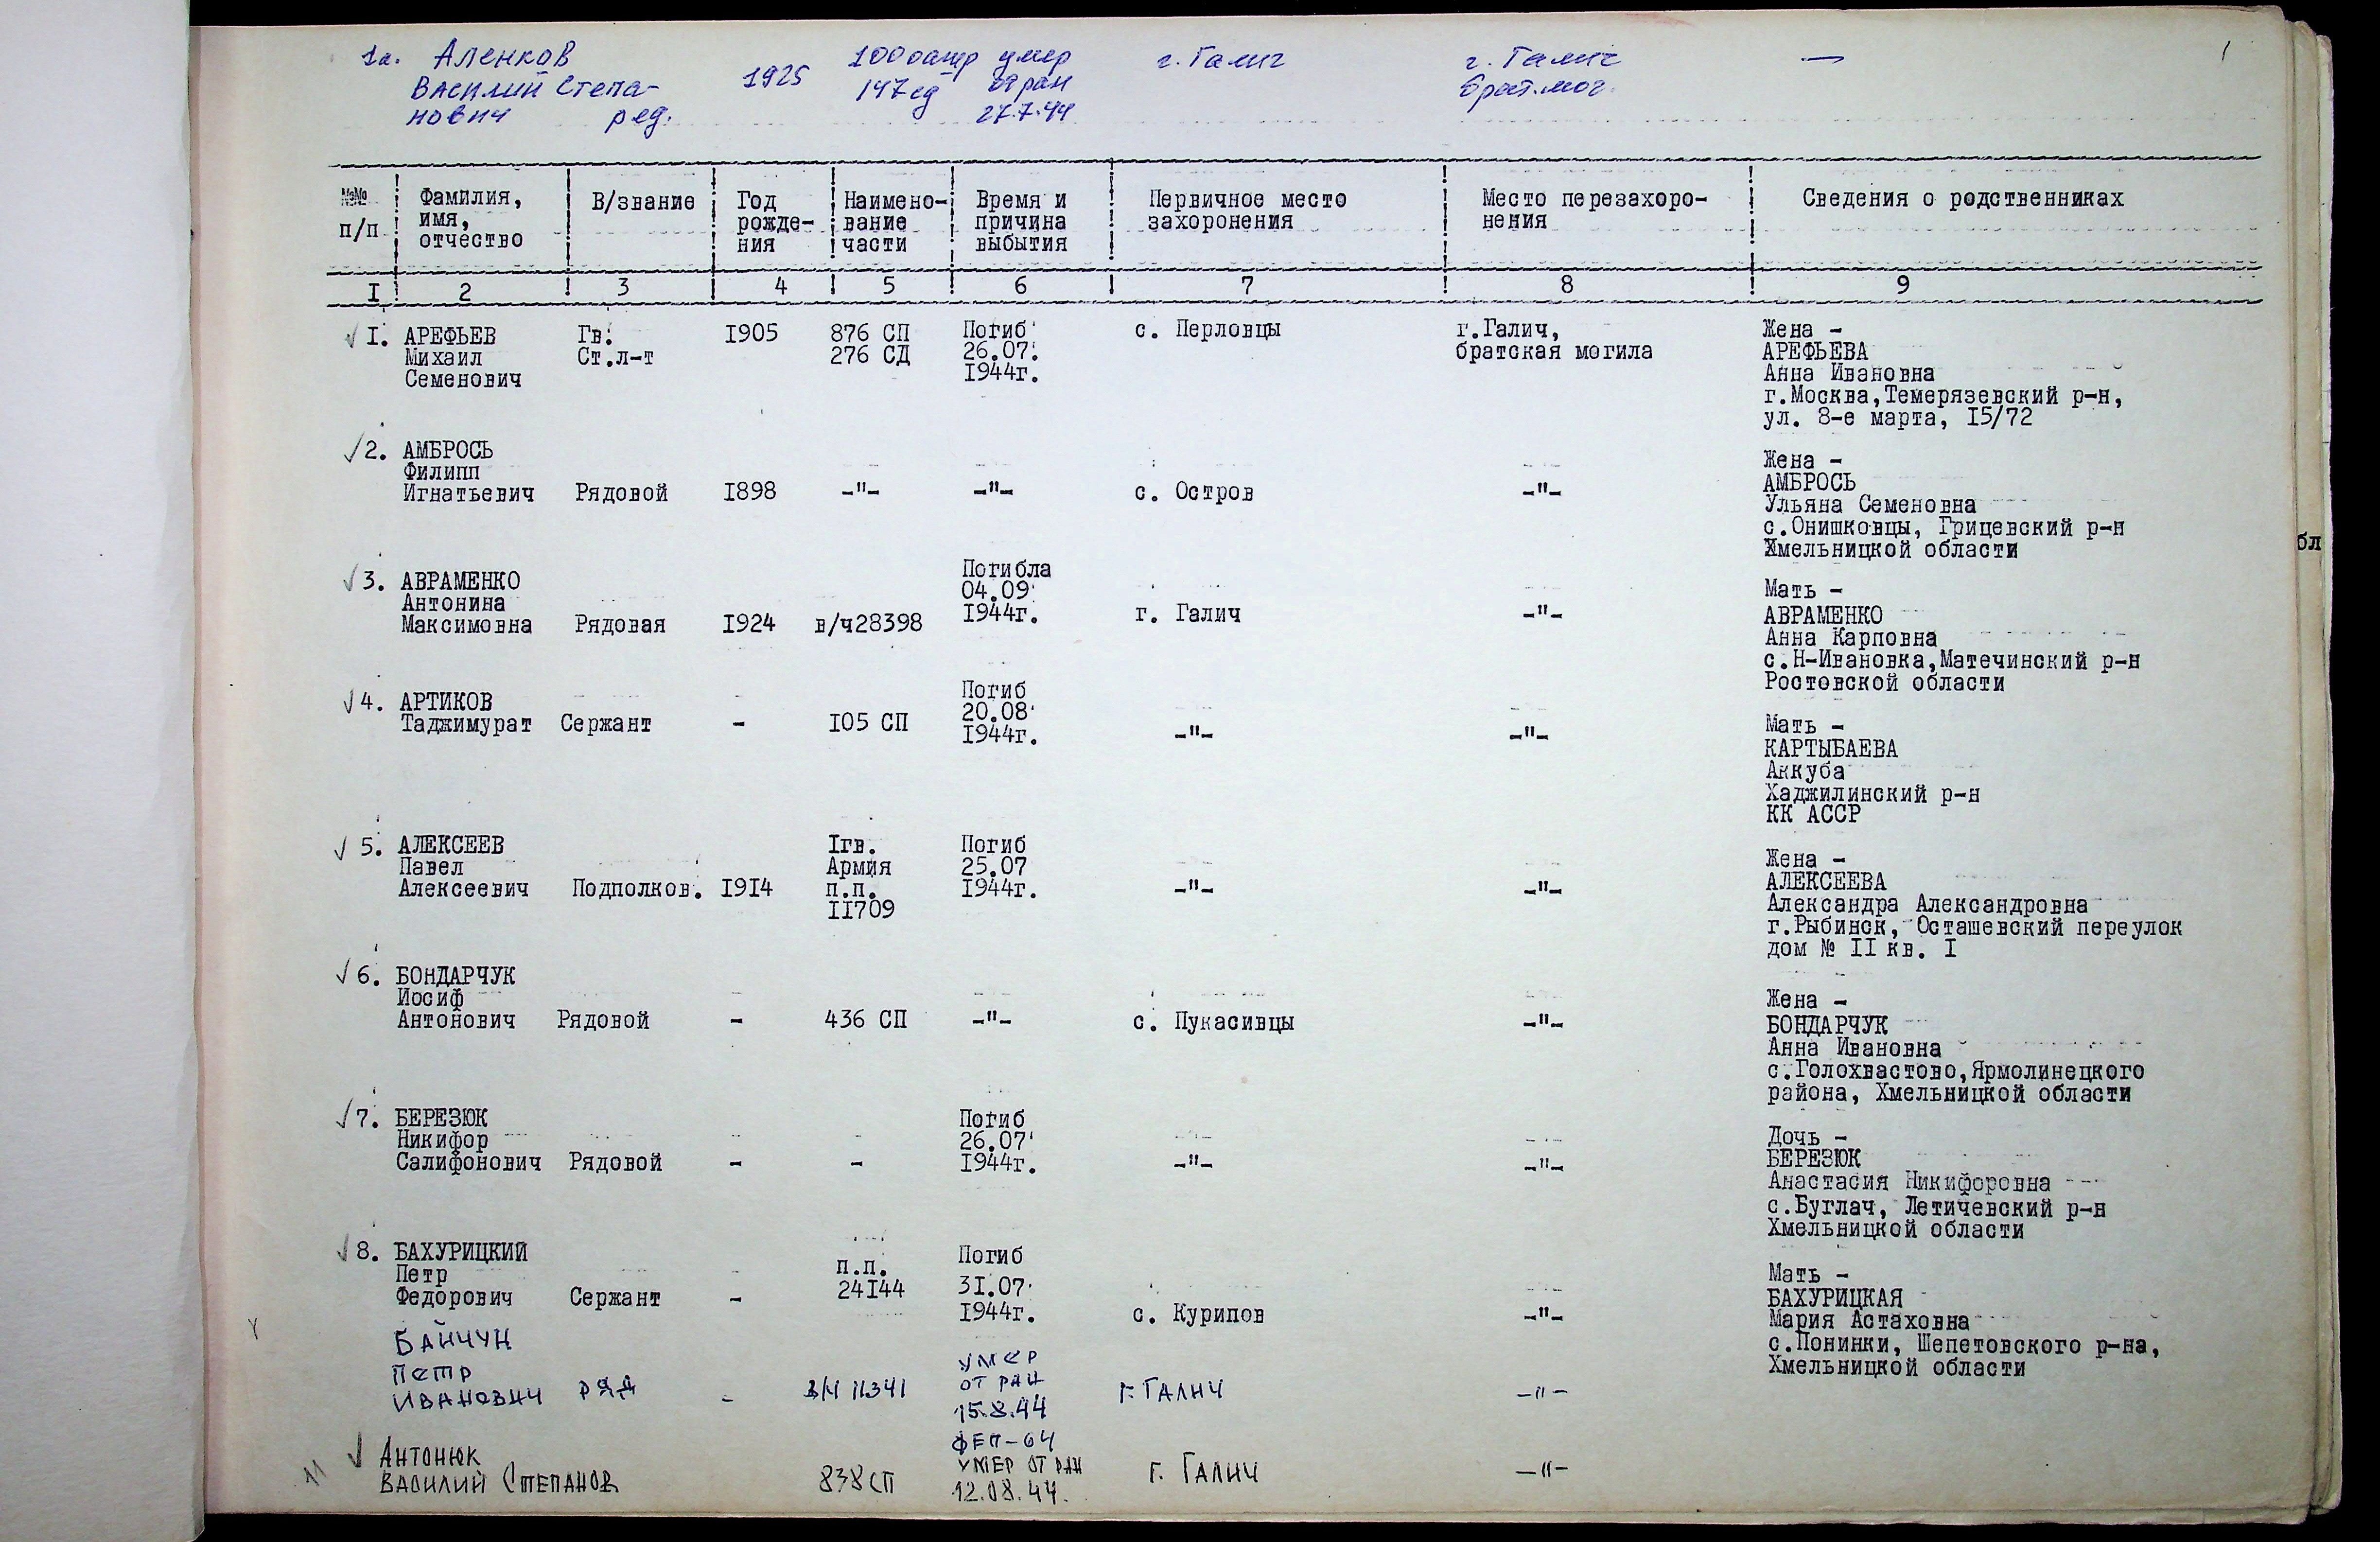 1а. Аленков 1925 100 оатр умер г. Галич г. Галич — 1
Василий Степа- 147 сд от ран брат.мог.
нович ряд. 27.7.44
№№ п/п Фамилия, имя, отчество В/звание Год рожде- ния Наимено- вание части Время и причина выбытия Первичное место захоронения Место перезахоро- нения Сведения о родственниках
I 2 3 4 5 6 7 8 9
I. АРЕФЬЕВ Гв. I905 876 СП Погиб с. Перловцы г.Галич, Жена -
Михаил Ст.л-т 276 СД 26.07. братская могила АРЕФЬЕВА
Семенович I944г. Анна Ивановна
г.Москва,Темерязевский р-н,
ул. 8-е марта, I5/72
2. АМБРОСЬ Жена -
Филипп АМБРОСЬ
Игнатьевич Рядовой I898 -"- -"- с. Остров -"- Ульяна Семеновна
с.Онишковцы, Грицевский р-н
Хмельницкой области
3. АВРАМЕНКО Погибла Мать -
Антонина 04.09. АВРАМЕНКО
Максимовна Рядовая I924 в/ч28398 I944г. г. Галич -"- Анна Карповна
с.Н-Ивановка,Матечинский р-н
Ростовской области
4. АРТИКОВ Погиб Мать -
Таджимурат Сержант - I05 СП 20.08. КАРТЫБАЕВА
I944г. -"- -"- Аккуба
Хаджилинский р-н
КК АССР
5. АЛЕКСЕЕВ Iгв. Погиб Жена -
Павел Армия 25.07 АЛЕКСЕЕВА
Алексеевич Подполков. I9I4 п.п. I944г. -"- -"- Александра Александровна
II709 г.Рыбинск, Осташевский переулок
дом № II кв. I
6. БОНДАРЧУК Жена -
Иосиф БОНДАРЧУК
Антонович Рядовой - 436 СП -"- с. Пукасивцы -"- Анна Ивановна
с.Голохвастово,Ярмолинецкого
района, Хмельницкой области
7. БЕРЕЗЮК Погиб Дочь -
Никифор 26.07. БЕРЕЗЮК
Салифонович Рядовой - - I944г. -"- -"- Анастасия Никифоровна
с.Буглач, Летичевский р-н
Хмельницкой области
8. БАХУРИЦКИЙ п.п. Погиб Мать -
Петр 24I44 3I.07. БАХУРИЦКАЯ
Федорович Сержант - I944г. с. Курипов -"- Мария Астаховна
с.Понинки, Шепетовского р-на,
Хмельницкой области
Банчун умер
Петр от ран
Иванович ряд - в/ч 11341 15.8.44 г. Галич -"-
ФЕП-64
Антонюк умер от ран
Василий Степанов 838 СП 12.08.44. г. Галич -"-
бл